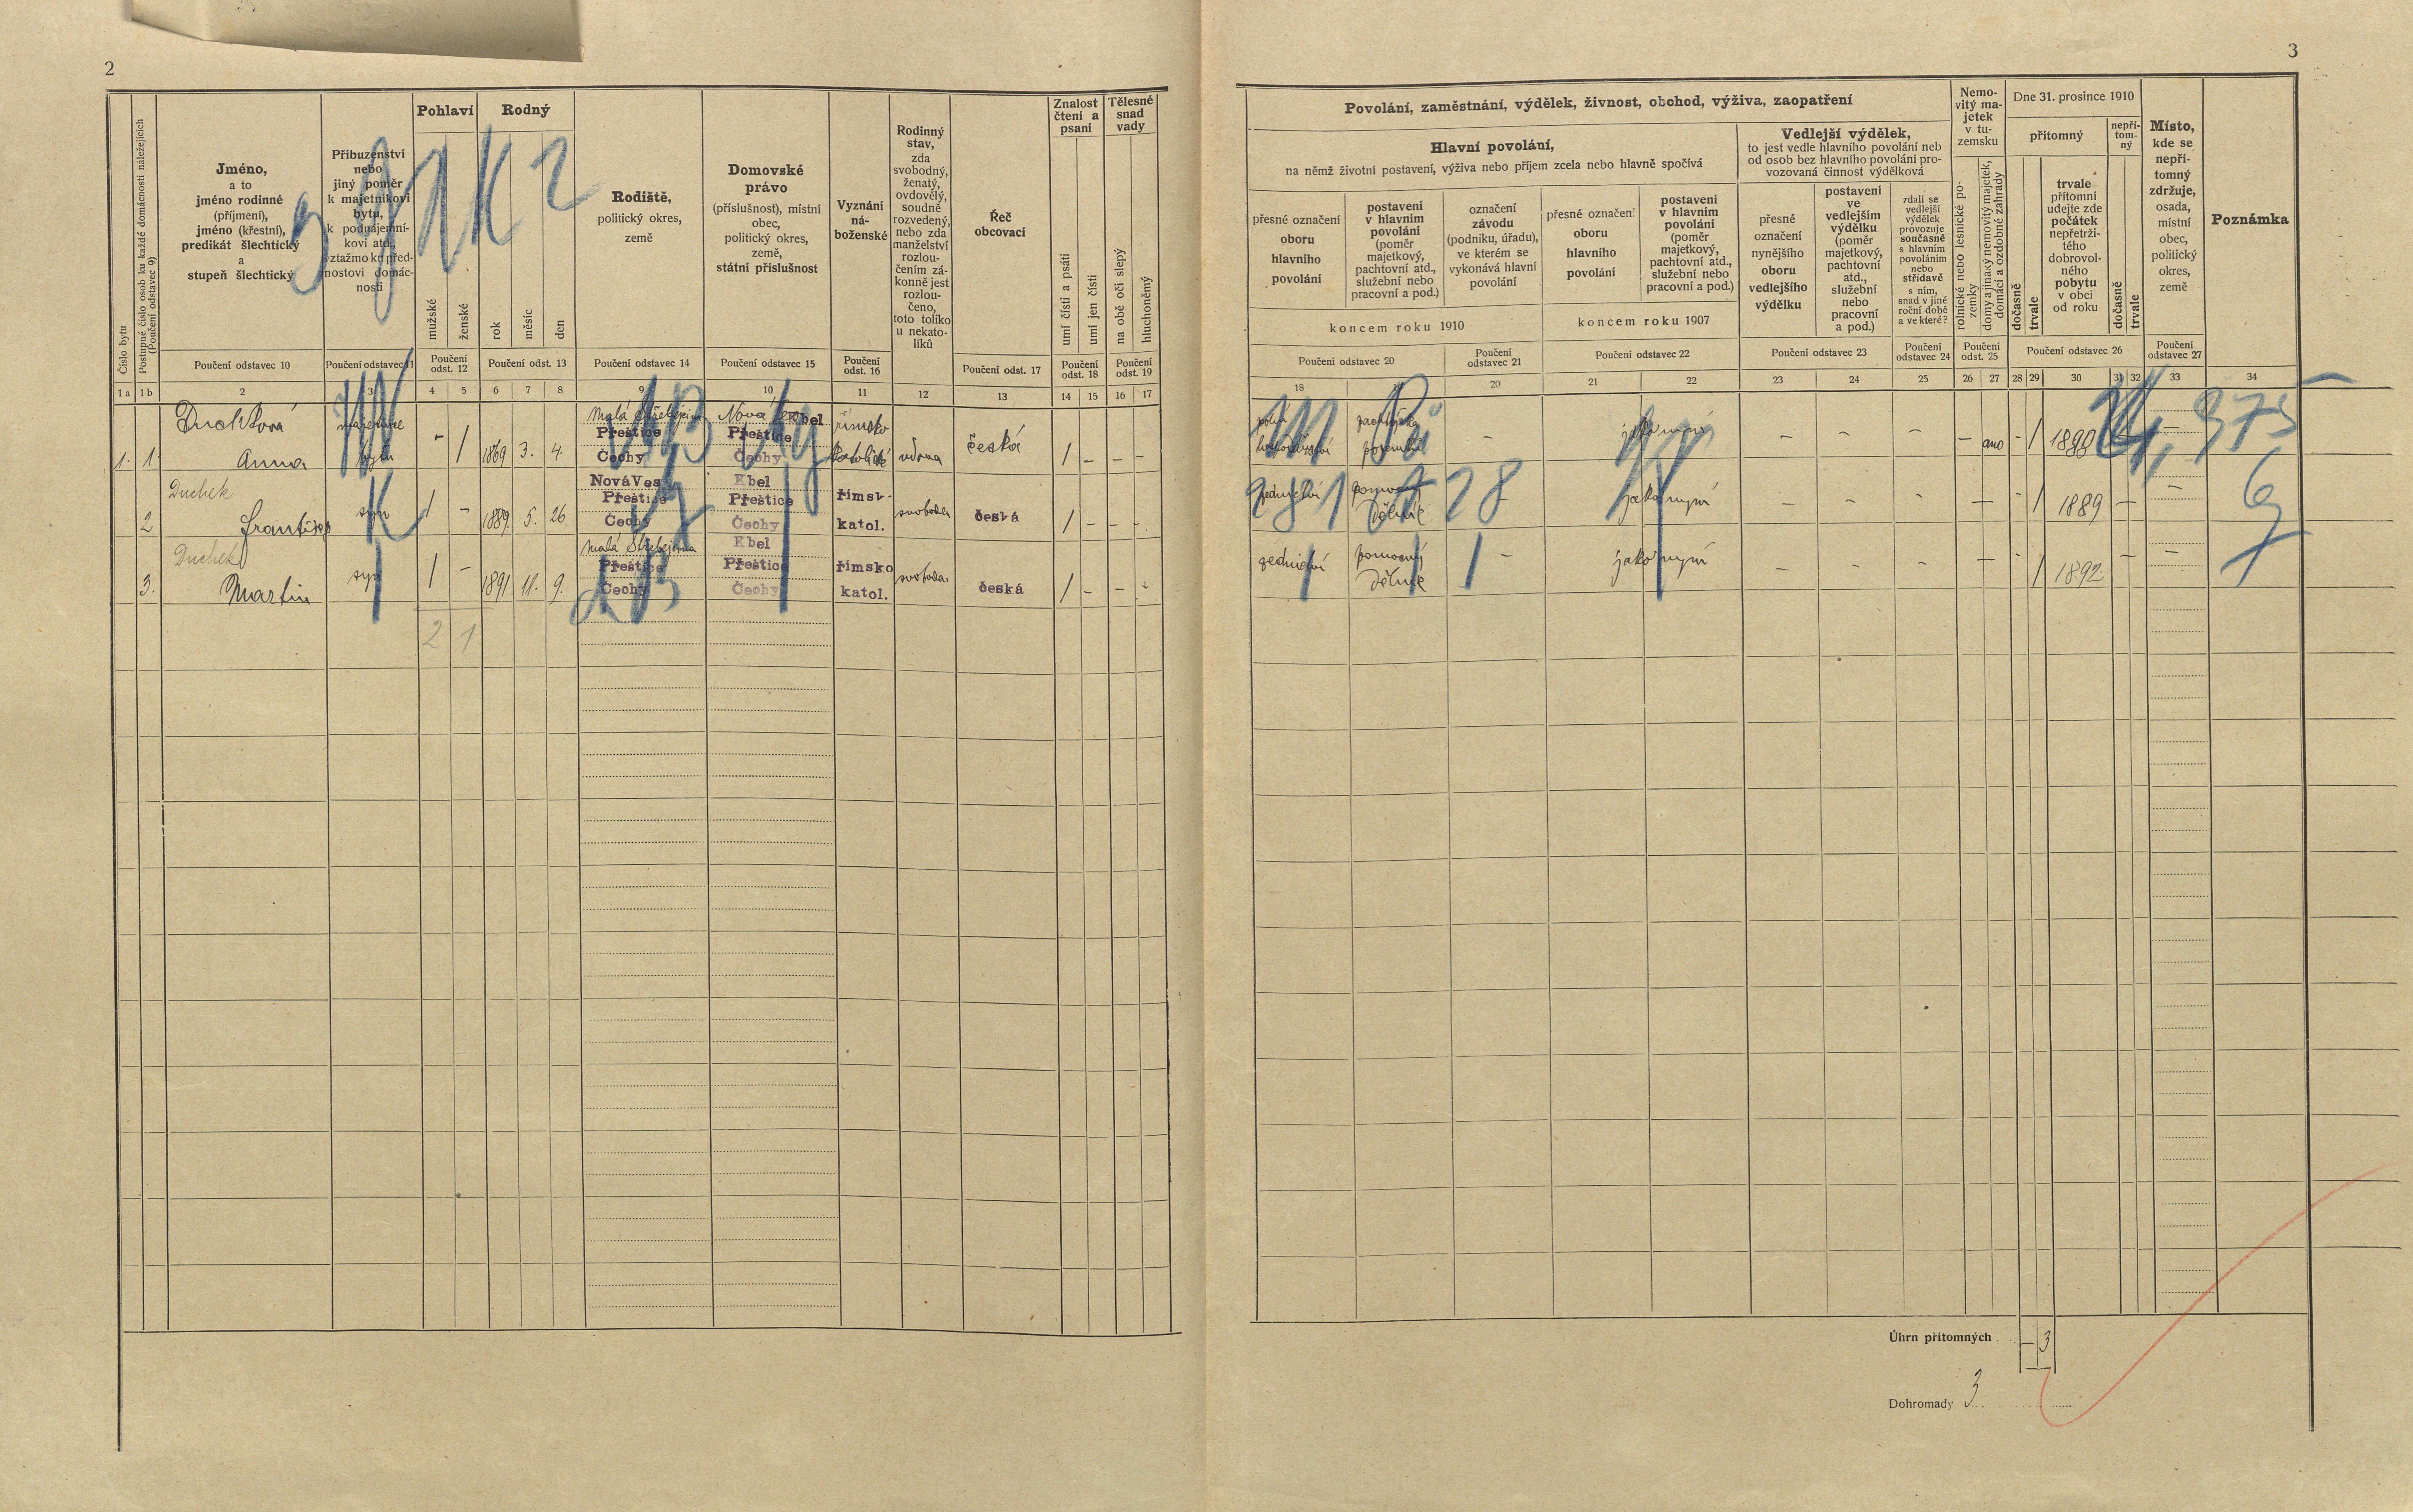 2
Číslo bytu
Postupné číslo osob ku každé domácnosti náležejících
(Poučení odstavec 9)
Jméno,
a to
jméno rodinné
(příjmení),
jméno (křestní),
predikát šlechtický
a
stupeň šlechtický
Příbuzenství
nebo
jiný poměr
k majetníkovi
bytu,
k podnájemní-
kovi atd.,
vztažmo ku před-
nostovi domác-
nosti
Pohlaví
mužské
ženské
Rodný
rok
měsíc
den
Rodiště,
politický okres,
země
Domovské
právo
(příslušnost), místní
obec,
politický okres,
země,
státní příslušnost
Vyznání
ná-
boženské
Rodinný
stav,
zda
svobodný,
ženatý,
ovdovělý,
soudně
rozvedený,
nebo zda
manželství
rozlou-
čením zá-
konně jest
rozlou-
čeno,
toto toliko
u nekato-
líků
Řeč
obcovací
Znalost
čtení a
psaní
umí čísti a psáti
umí jen čísti
Tělesné
snad
vady
na obě oči slepý
hluchoněmý
Poučení odstavec 10
Poučení odstavec 11
Poučení
odst. 12
Poučení odst. 13
Poučení odstavec 14
Poučení odstavec 15
Poučení
odst. 16
Poučení odst. 17
Poučení
odst. 18
Poučení
odst. 19
1a 1b 2 3 4 5 6 7 8 9 10 11 12 13 14 15 16 17
Duchková
majetnice
Malá Střebejčina
Nová Ves Kbel
římsko
Přeštice
Přeštice
česká
1. 1. Anna bytu - 1 1869 3. 4. Čechy Čechy katolické vdova 1 - - -
Duchek
Nová Ves
Kbel
Přeštice
Přeštice
římsk-
2 František syn 1 - 1889. 5. 26. Čechy Čechy katol. svoboden česká 1 - - -
Duchek
Malá Střebejčina
Kbel
Přeštice
Přeštice
římsko
3. Martin syn 1 - 1891 11. 9. Čechy Čechy katol. svoboden česká 1 - - -
2 1
3
Povolání, zaměstnání, výdělek, živnost, obchod, výživa, zaopatření
Hlavní povolání,
na němž životní postavení, výživa nebo příjem zcela nebo hlavně spočívá
přesné označení
oboru
hlavního
povolání
postavení
v hlavním
povolání
(poměr
majetkový,
pachtovní atd.,
služební nebo
pracovní a pod.)
označení
závodu
(podniku, úřadu),
ve kterém se
vykonává hlavní
povolání
přesné označení
oboru
hlavního
povolání
postavení
v hlavním
povolání
(poměr
majetkový,
pachtovní atd.,
služební nebo
pracovní a pod.)
koncem roku 1910
koncem roku 1907
Vedlejší výdělek,
to jest vedle hlavního povolání neb
od osob bez hlavního povolání pro-
vozovaná činnost výdělková
přesné
označení
nynějšího
oboru
vedlejšího
výdělku
postavení
ve
vedlejším
výdělku
(poměr
majetkový,
pachtovní
atd.,
služební
nebo
pracovní
a pod.)
zdali se
vedlejší
výdělek
provozuje
současně
s hlavním
povoláním
nebo
střídavě
s ním,
snad v jiné
roční době
a ve které?
Nemo-
vitý ma-
jetek
v tu-
zemsku
rolnické nebo lesnické po-
zemky
domy a jinaký nemovitý majetek,
domácí a ozdobné zahrady
Dne 31. prosince 1910
přítomný
nepří-
tom-
ný
dočasně
trvale
trvale
přítomní
udejte zde
počátek
nepřetrži-
tého
dobrovol-
ného
pobytu
v obci
od roku
dočasně
trvale
Místo,
kde se
nepří-
tomný
zdržuje,
osada,
místní
obec,
politický
okres,
země
Poznámka
Poučení odstavec 20
Poučení
odstavec 21
Poučení odstavec 22
Poučení odstavec 23
Poučení
odstavec 24
Poučení
odst. 25
Poučení odstavec 26
Poučení
odstavec 27
18 20 21 22 23 24 25 26 27 28 29 30 31 32 33 34
polní
jako nyní
- - - - - ano - 1 1890 -
zednictví pomocný
dělník
- jako nyní - - - - - 1 1889 - -
zednictví pomocný
dělník
- jako nyní - - - - - 1 1892 - -
Úhrn přítomných - 3
Dohromady 3